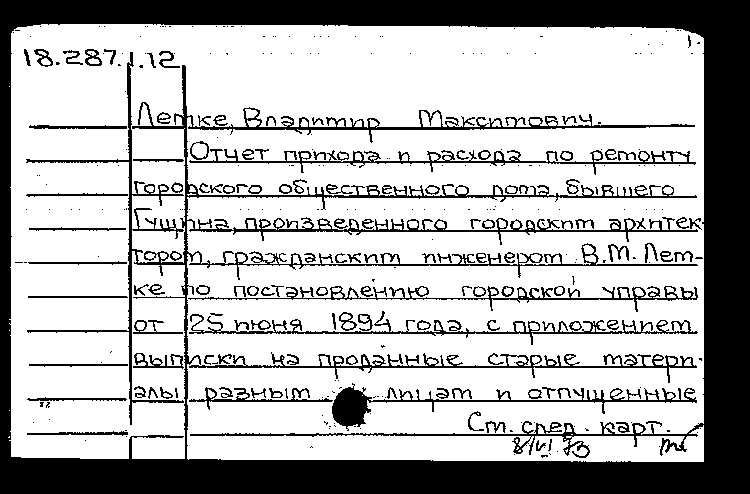 18.287.1.12
1.
Лемке, Владимир Максимович.
Отчет прихода и расхода по ремонту
городского общественного дома, бывшего
Гущина, произведенного городским архитек-
тором, гражданским инженером В.М. Лем-
ке по постановлению городской управы
от 25 июня 1894 года, с приложением
выписки на проданные старые матери-
алы разным лицам и отпущенные
См. след. карт.
8/VI 73